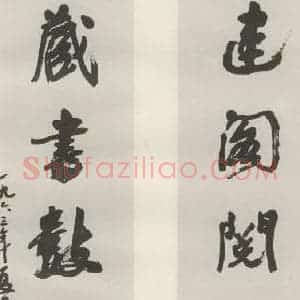 建閣閱
藏書數
一九六三年
Shufaziliao.com